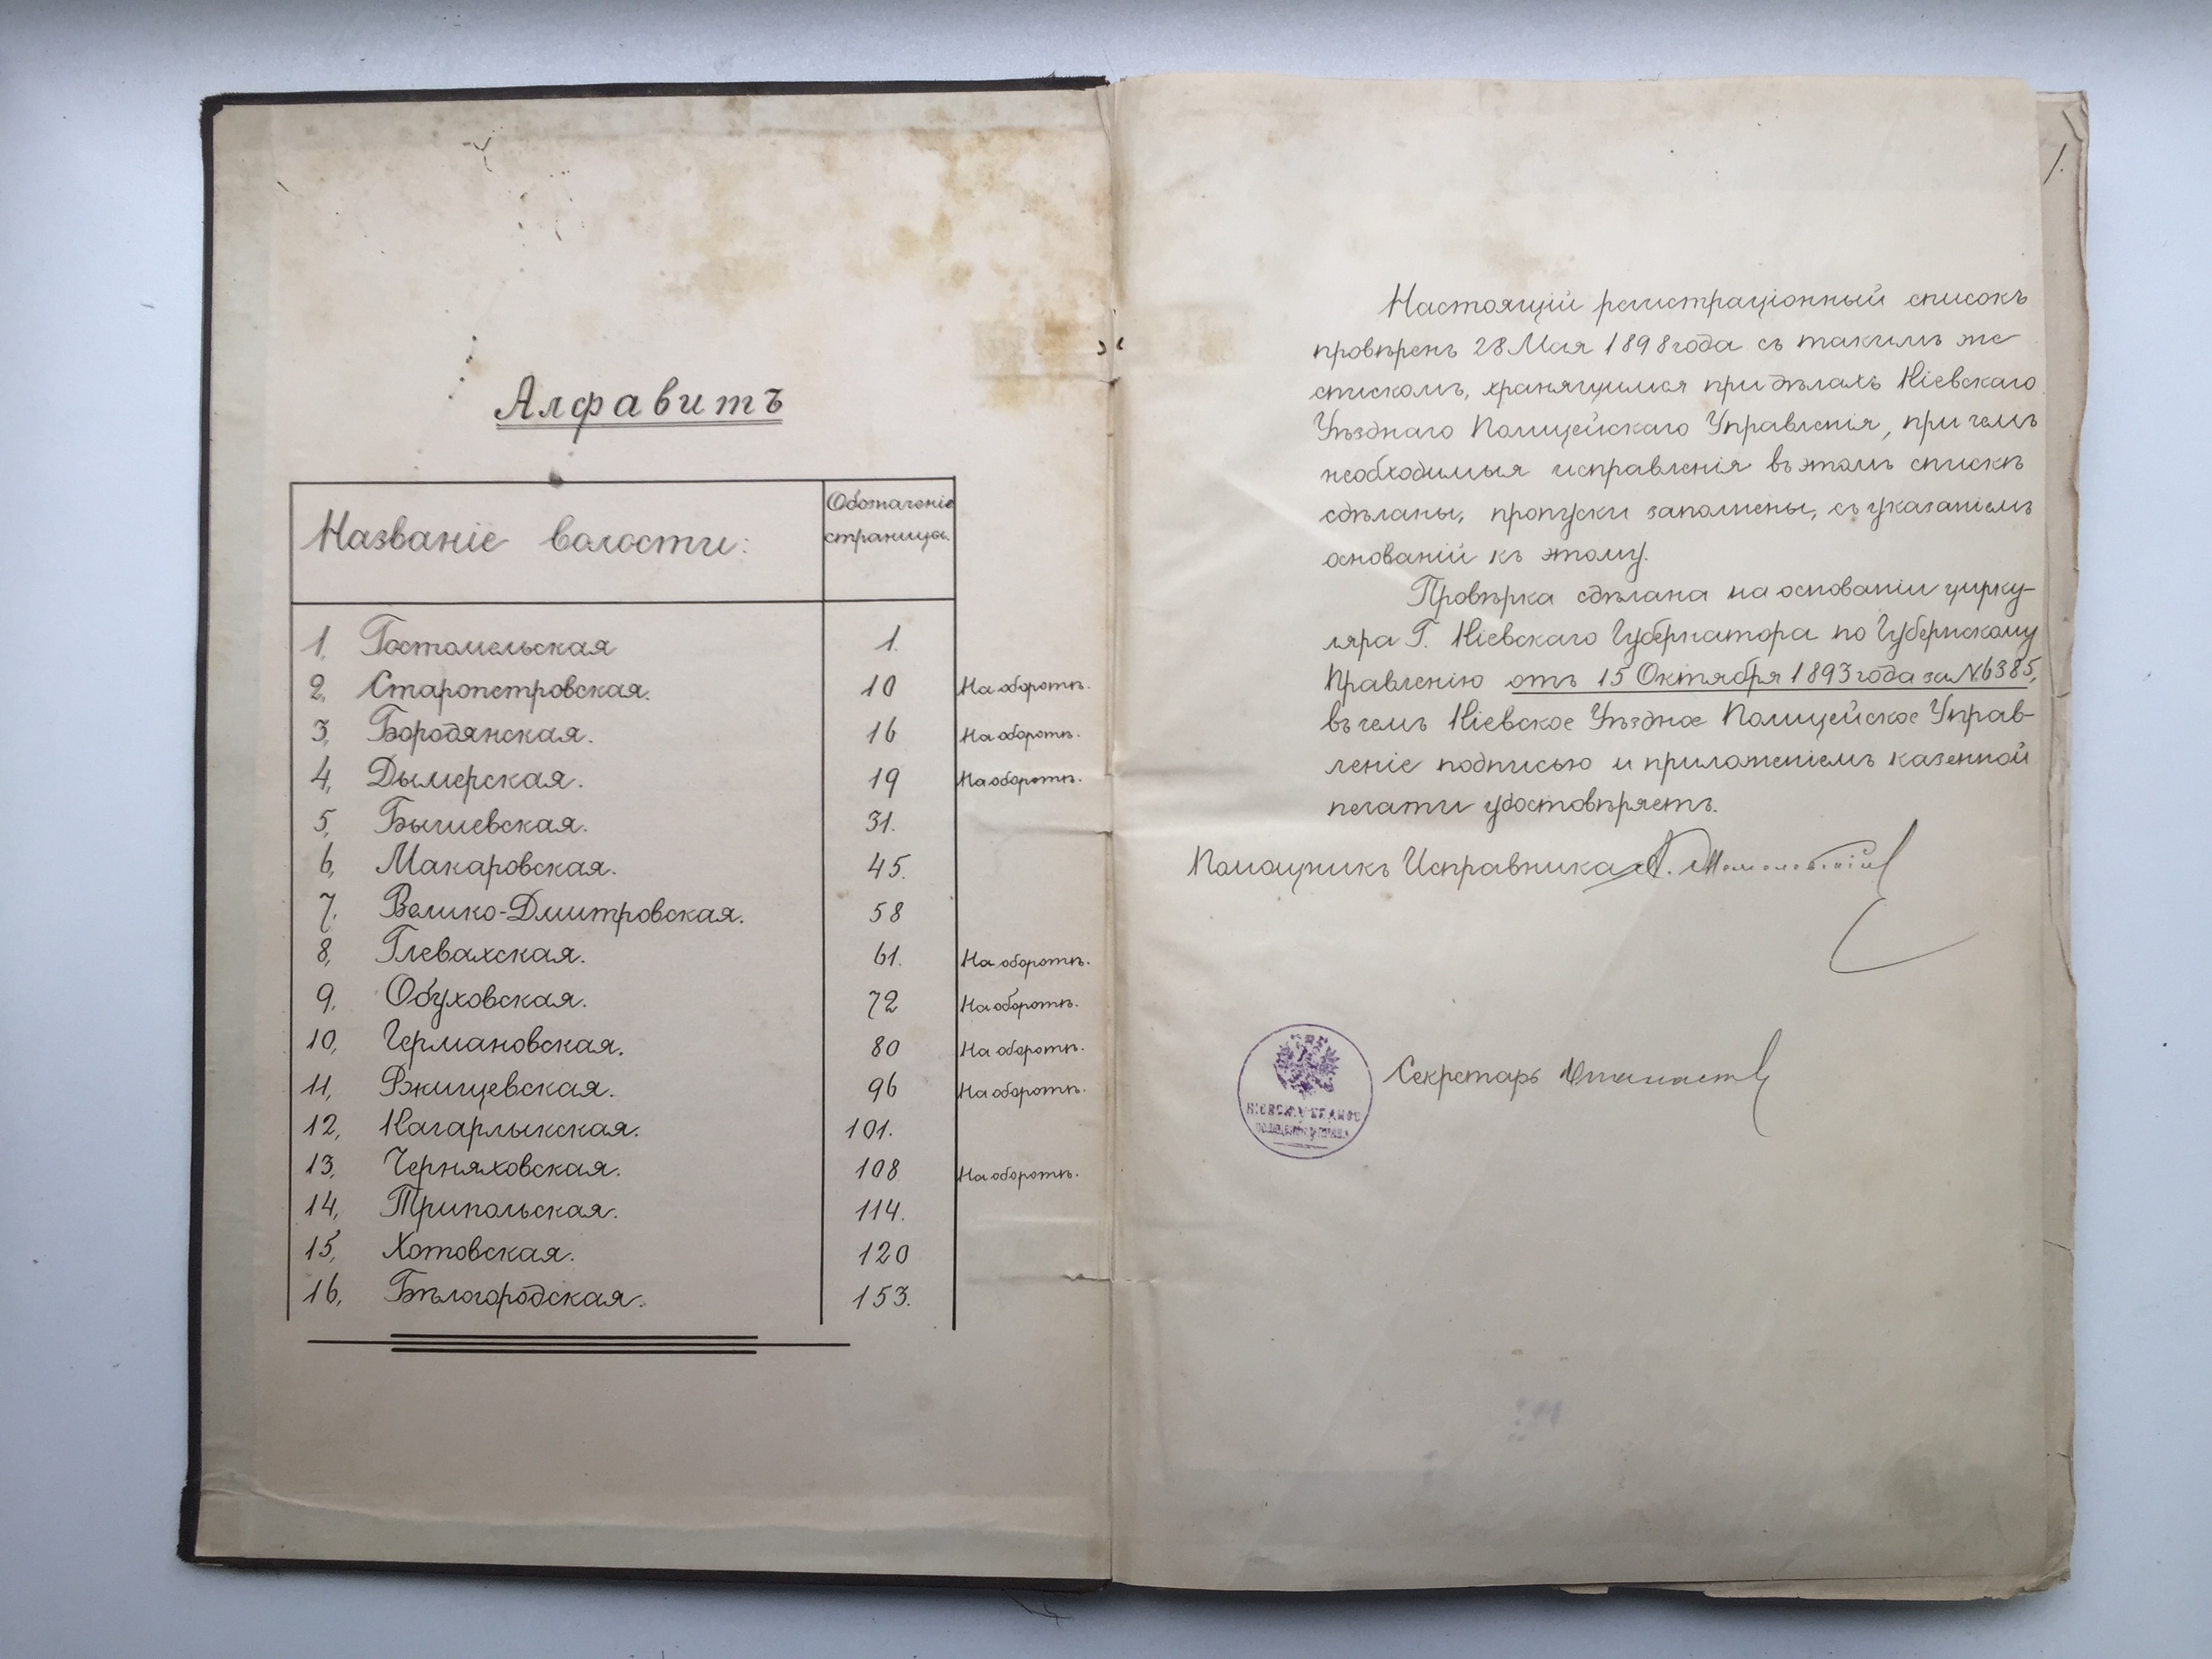 Алфавитъ
Названіе волости:
Обозначеніе
страницы.
1. Гостомельская 1.
2, Старопетровская. 10 На оборотѣ.
3, Бородянская. 16 На оборотѣ.
4, Дымерская. 19 На оборотѣ.
5, Бышевская. 31.
6, Макаровская. 45.
7, Велико-Дмитровская. 58
8, Глевахская. 61. На оборотѣ.
9, Обуховская. 72 На оборотѣ.
10, Германовская. 80 На оборотѣ.
11, Ржищевская. 96 На оборотѣ.
12, Кагарлыкская. 101.
13, Черняховская. 108 На оборотѣ.
14, Трипольская. 114.
15, Хотовская. 120
16, Бѣлогородская. 153.
1.
Настоящій регистраціонный списокъ
провѣренъ 28 Мая 1898 года съ такимъ же
спискомъ, хранящимся при дѣлахъ Кіевскаго
Уѣзднаго Полицейскаго Управленія, при чемъ
необходимыя исправленія въ этомъ спискѣ
сдѣланы, пропуски заполнены, съ указаніемъ
основаній къ этому.
Провѣрка сдѣлана на основаніи цирку-
ляра Г. Кіевскаго Губернатора по Губернскому
Правленію отъ 15 Октября 1893 года за № 6385,
въ чемъ Кіевское Уѣздное Полицейское Управ-
леніе подписью и приложеніемъ казенной
печати удостовѣряетъ.
Помощникъ Исправника
Секретарь